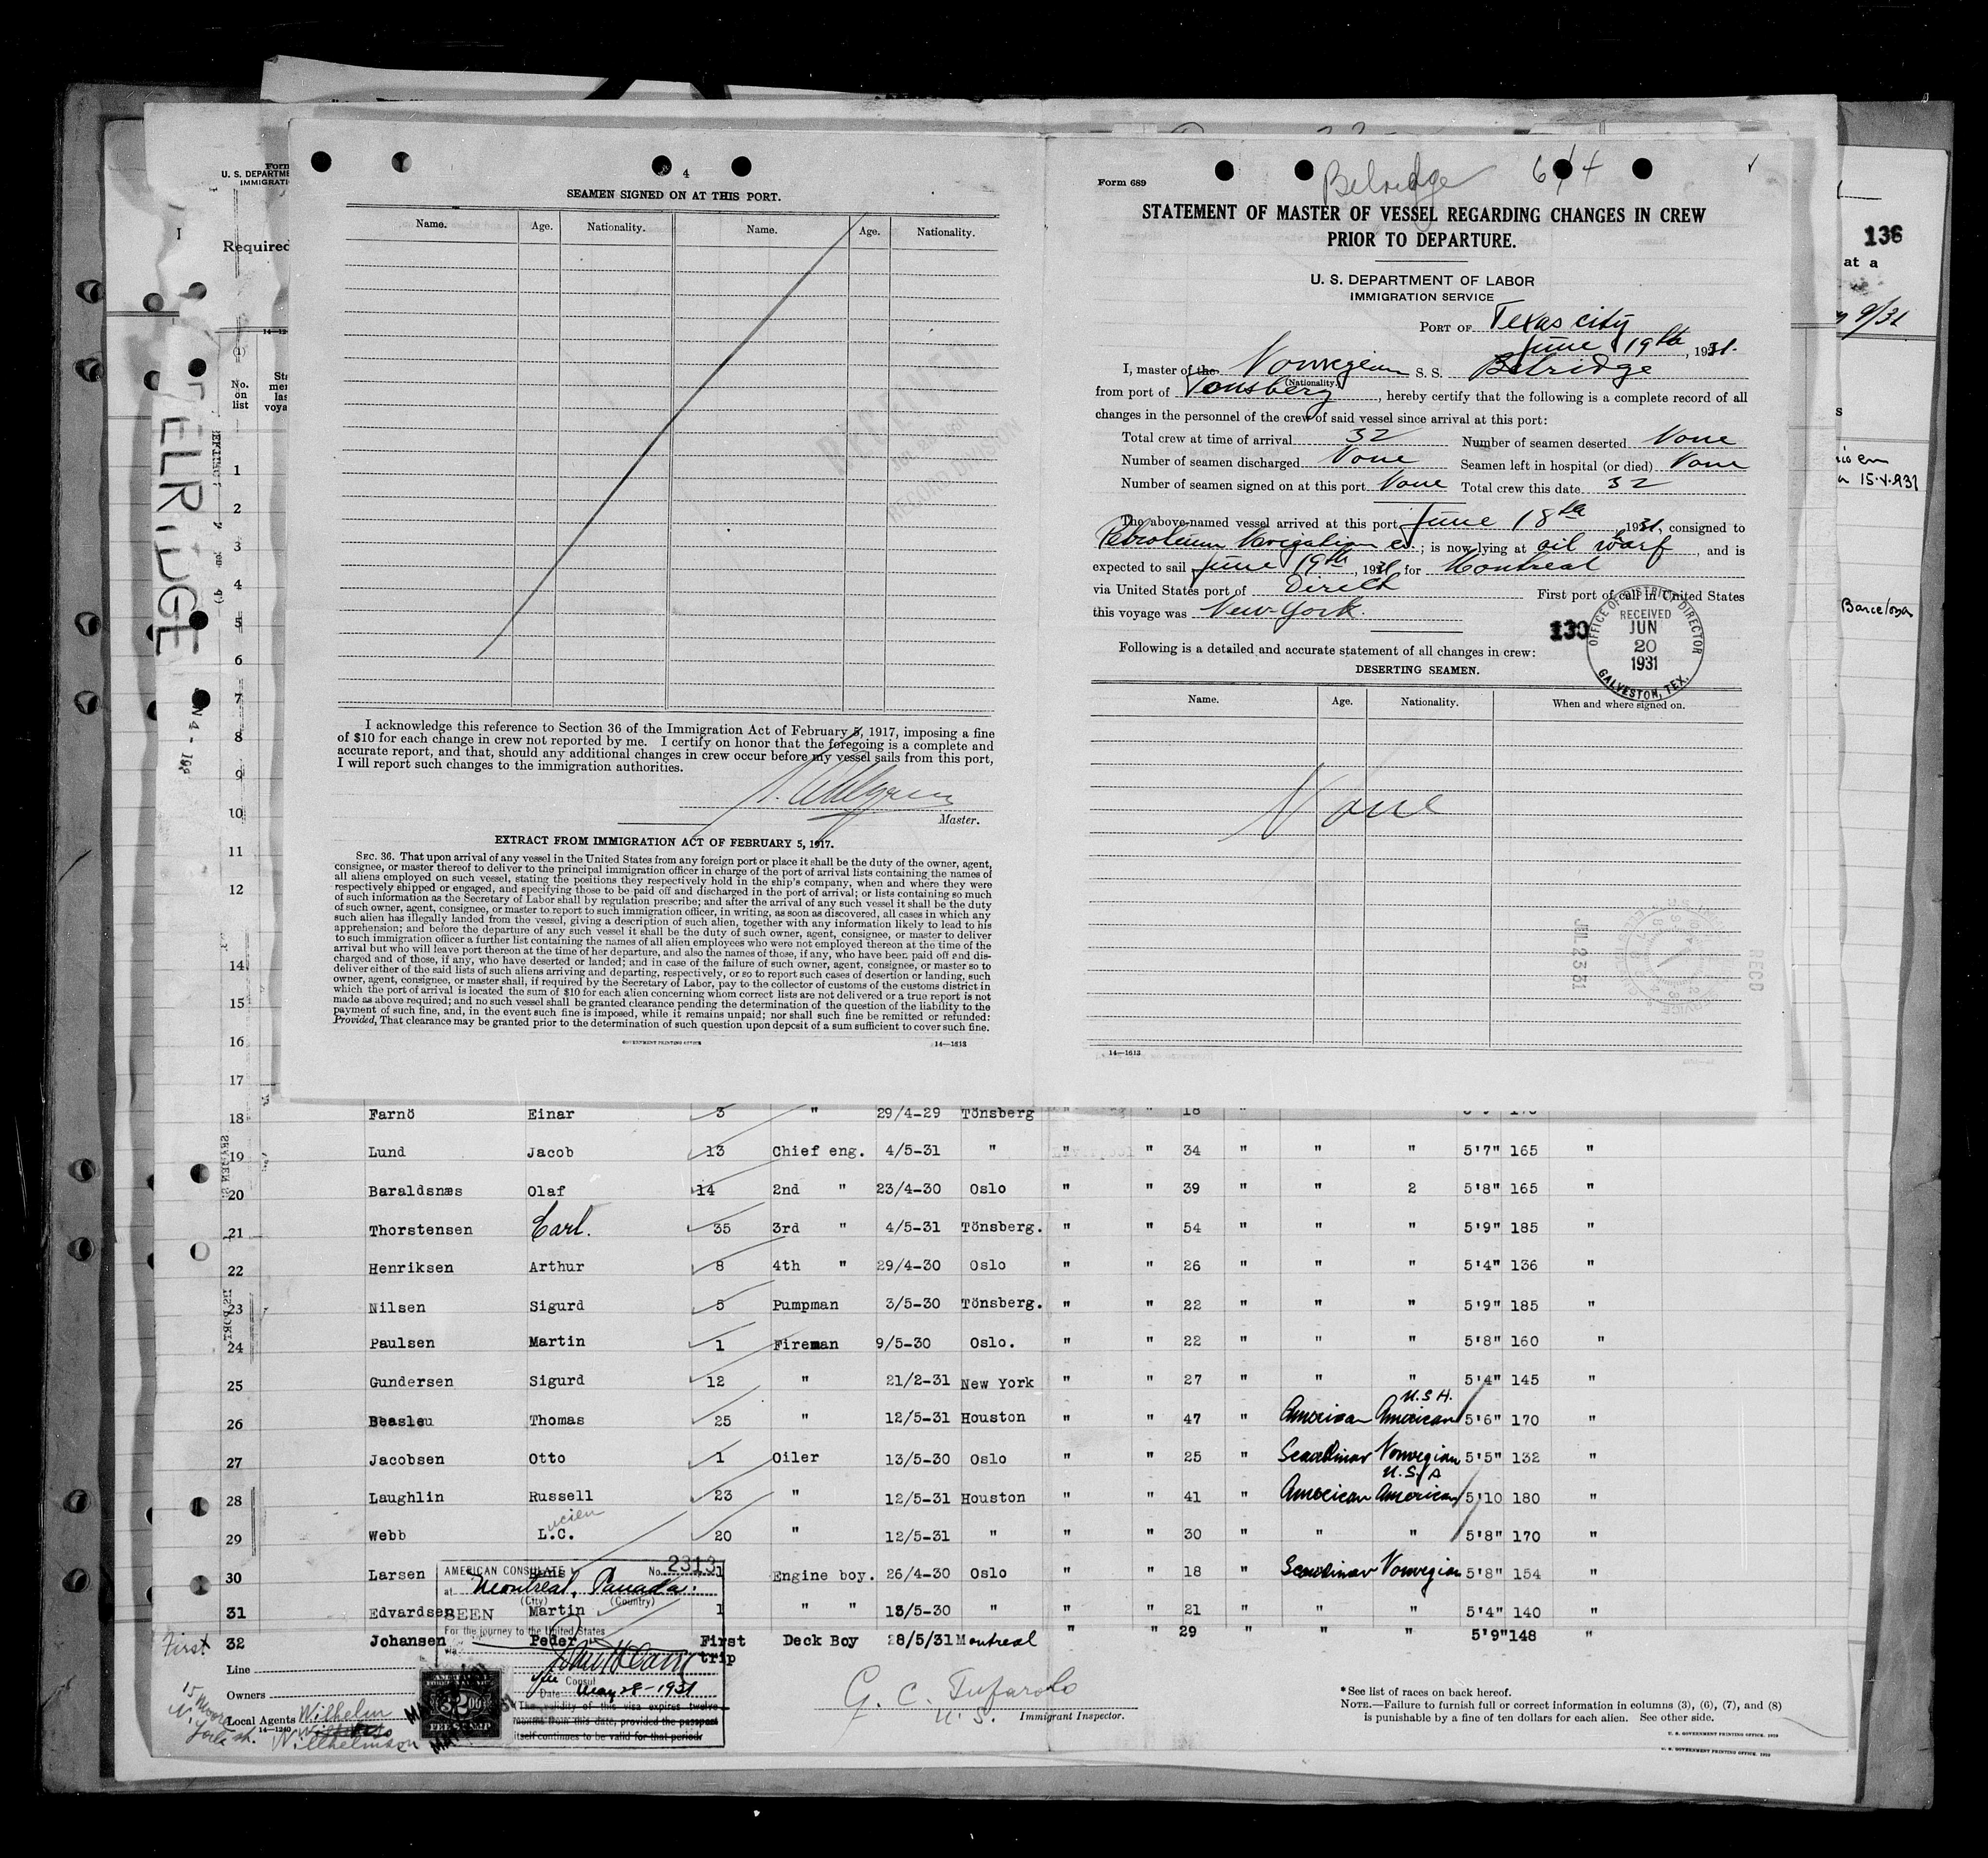 4
SEAMEN SIGNED ON AT THIS PORT.
Name. Age. Nationality. Name. Age. Nationality.
I acknowledge this reference to Section 36 of the Immigration Act of February 5, 1917, imposing a fine
of $10 for each change in crew not reported by me. I certify on honor that the foregoing is a complete and
accurate report, and that, should any additional changes in crew occur before my vessel sails from this port,
I will report such changes to the immigration authorities.
Master.
EXTRACT FROM IMMIGRATION ACT OF FEBRUARY 5, 1917.
SEC. 36. That upon arrival of any vessel in the United States from any foreign port or place it shall be the duty of the owner, agent,
consignee, or master thereof to deliver to the principal immigration officer in charge of the port of arrival lists containing the names of
all aliens employed on such vessel, stating the positions they respectively hold in the ship's company, when and where they were
respectively shipped or engaged, and specifying those to be paid off and discharged in the port of arrival; or lists containing so much
of such information as the Secretary of Labor shall by regulation prescribe; and after the arrival of any such vessel it shall be the duty
of such owner, agent, consignee, or master to report to such immigration officer, in writing, as soon as discovered, all cases in which any
such alien has illegally landed from the vessel, giving a description of such alien, together with any information likely to lead to his
apprehension; and before the departure of any such vessel it shall be the duty of such owner, agent, consignee, or master to deliver
to such immigration officer a further list containing the names of all alien employees who were not employed thereon at the time of the
arrival but who will leave port thereon at the time of her departure, and also the names of those, if any, who have been paid off and dis-
charged and of those, if any, who have deserted or landed; and in case of the failure of such owner, agent, consignee, or master so to
deliver either of the said lists of such aliens arriving and departing, respectively, or so to report such cases of desertion or landing, such
owner, agent, consignee, or master shall, if required by the Secretary of Labor, pay to the collector of customs of the customs district in
which the port of arrival is located the sum of $10 for each alien concerning whom correct lists are not delivered or a true report is not
made as above required; and no such vessel shall be granted clearance pending the determination of the question of the liability to the
payment of such fine, and, in the event such fine is imposed, while it remains unpaid; nor shall such fine be remitted or refunded:
Provided, That clearance may be granted prior to the determination of such question upon deposit of a sum sufficient to cover such fine.
GOVERNMENT PRINTING OFFICE 14—1613
Form 689 Belridge 6/4
STATEMENT OF MASTER OF VESSEL REGARDING CHANGES IN CREW
PRIOR TO DEPARTURE.
U. S. DEPARTMENT OF LABOR
IMMIGRATION SERVICE
PORT OF Texas city
June 19th, 1931.
I, master of the Norwegian S. S. Belridge
(Nationality.)
from port of Tonsberg, hereby certify that the following is a complete record of all
changes in the personnel of the crew of said vessel since arrival at this port:
Total crew at time of arrival 32 Number of seamen deserted None
Number of seamen discharged None Seamen left in hospital (or died) None
Number of seamen signed on at this port None Total crew this date 32
The above-named vessel arrived at this port June 18th 1931, consigned to
Petroleum Navigation Co.; is now lying at oil warf, and is
expected to sail June 19th, 1931, for Montreal
via United States port of Direct First port of call in United States
this voyage was New-York.
130
OFFICE OF DISTRICT DIRECTOR
RECEIVED
JUN
20
1931
GALVESTON, TEX.
Following is a detailed and accurate statement of all changes in crew:
DESERTING SEAMEN.
Name. Age. Nationality. When and where signed on.
None
14—1613
Form
U. S. DEPARTME
IMMIGRATI
Required
No. on list
BELRIDGE
136
at a
9/31
15-V-931
Barcelona
1
2
3
4
5
6
7
8
9
10
11
12
14
15
16
17
18 Farnö Einar 3 " 29/4-29 Tönsberg " " 18 "
19 Lund Jacob 13 Chief eng. 4/5-31 " " " 34 " " " 5'7" 165 "
20 Baraldsnæs Olaf 14 2nd " 23/4-30 Oslo " " 39 " " 2 5'8" 165 "
21 Thorstensen Carl. 35 3rd " 4/5-31 Tönsberg. " " 54 " " " 5'9" 185 "
22 Henriksen Arthur 8 4th " 29/4-30 Oslo " " 26 " " " 5'4" 136 "
23 Nilsen Sigurd 5 Pumpman 3/5-30 Tönsberg. " " 22 " " " 5'9" 185 "
24 Paulsen Martin 1 Fireman 9/5-30 Oslo. " " 22 " " " 5'8" 160 "
25 Gundersen Sigurd 12 " 21/2-31 New York " " 27 " " " 5'4" 145 "
U.S.A.
26 Beasleu Thomas 25 " 12/5-31 Houston " " 47 " American American 5'6" 170 "
27 Jacobsen Otto 1 Oiler 13/5-30 Oslo " " 25 " Scandinav Norwegian 5'5" 132 "
U.S.A
28 Laughlin Russell 23 " 12/5-31 Houston " " 41 " American American 5'10 180 "
29 Webb L.C. ucien 20 " 12/5-31 " " " 30 " " " 5'8" 170 "
30 Larsen Hans 1 Engine boy. 26/4-30 Oslo " " 18 " Scandinav Norwegian 5'8" 154 "
31 Edvardsen Martin 1 " " 13/5-30 " " " 21 " " " 5'4" 140 "
First 32 Johansen Peder First trip Deck Boy 28/5/31 Montreal " " 29 " " " 5'9" 148 "
AMERICAN CONSULATE No. 2313
at Montreal, Canada.
(City) (Country)
SEEN
For the journey to the United States
via
Consul
Date May 28-1931
The validity of this visa expires twelve
months from this date, provided the passport
itself continues to be valid for that period
Line
Owners
Local Agents Wilhelm
Wilhelmson
14—1240
15 Moore
N. York
G. C. Tufarolo
U. S. Immigrant Inspector.
*See list of races on back hereof.
NOTE.—Failure to furnish full or correct information in columns (3), (6), (7), and (8)
is punishable by a fine of ten dollars for each alien. See other side.
U. S. GOVERNMENT PRINTING OFFICE: 1929